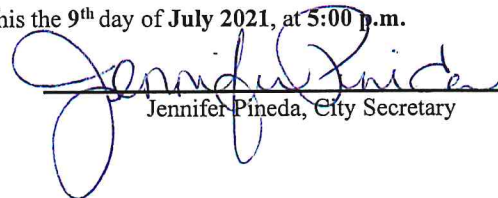 his the 9th day of July 2021, at 5:00 p.m.
Jennifer Pineda
Jennifer Pineda, City Secretary